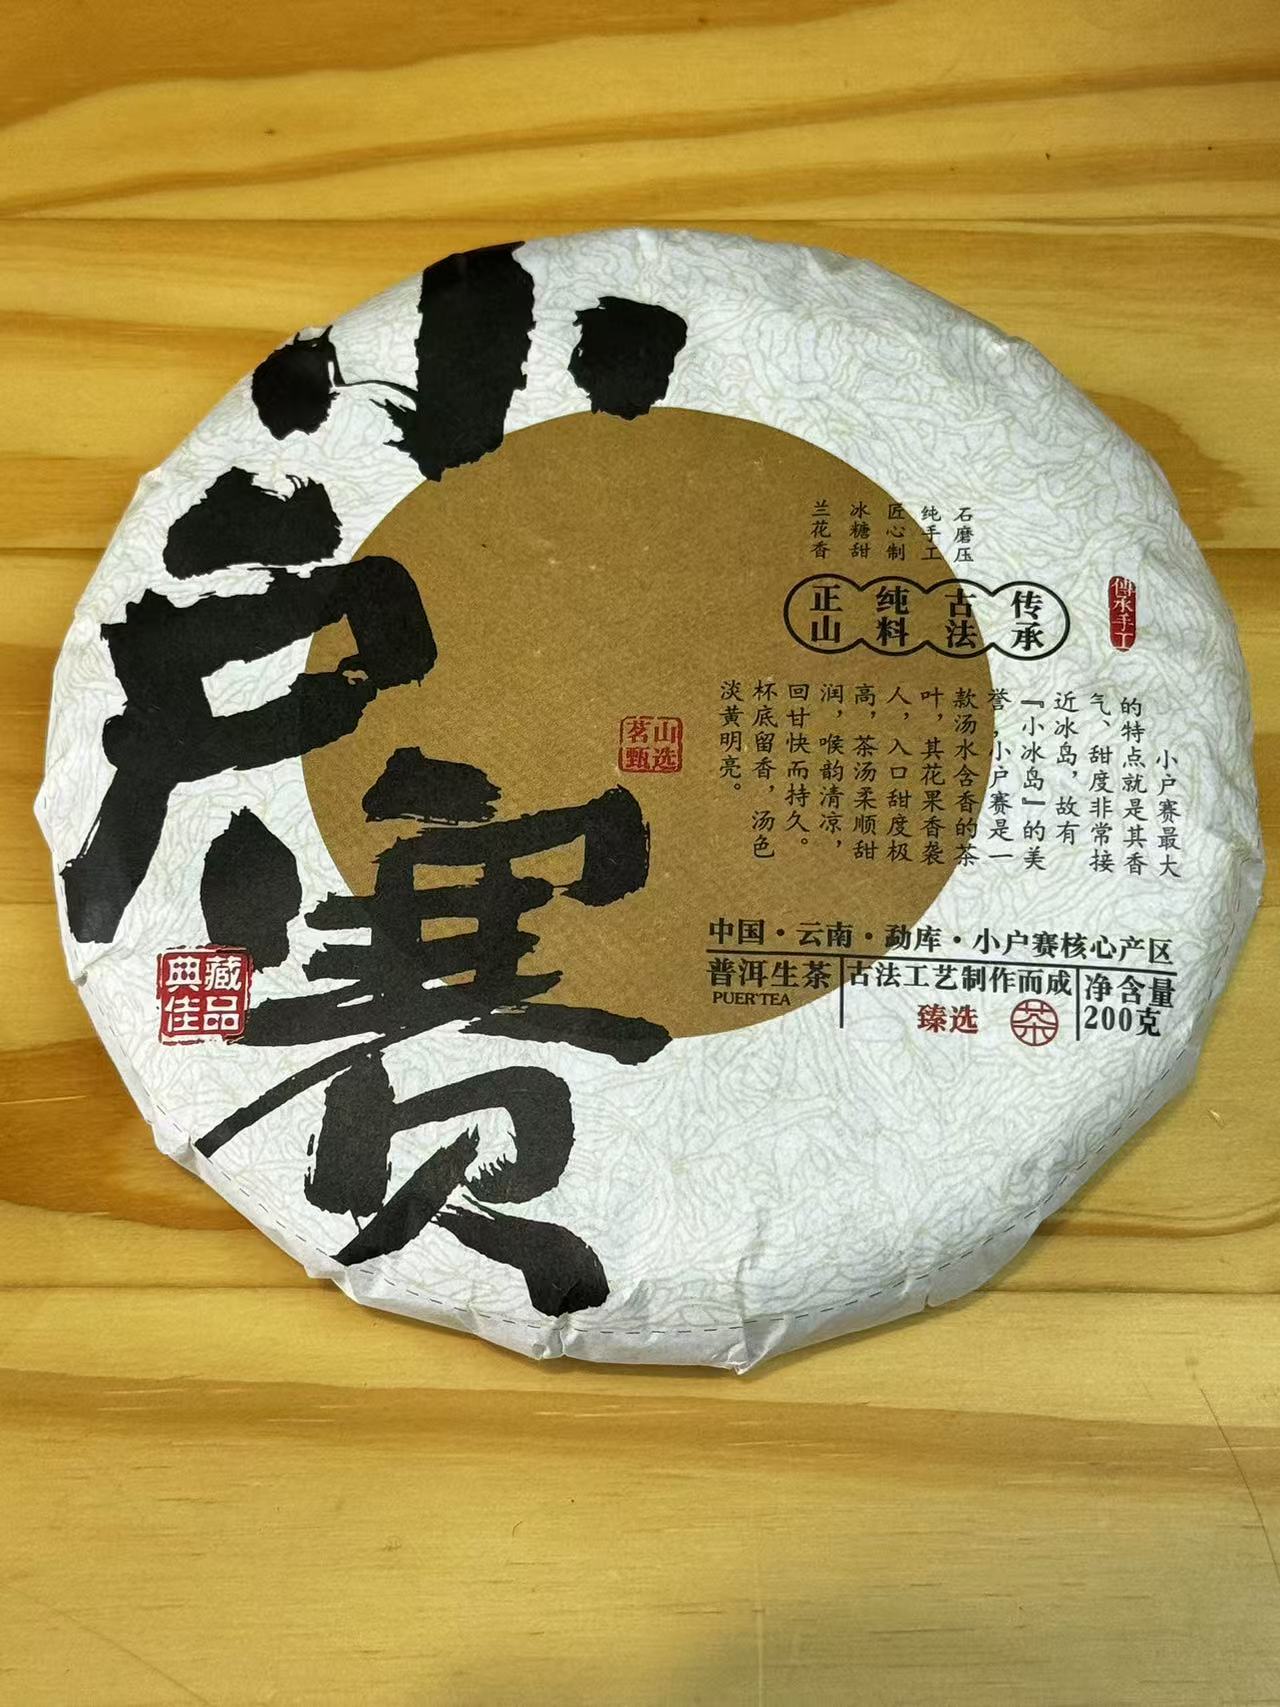 小户赛
石磨压
纯手工
匠心制
冰糖甜
兰花香
正山
纯料
古法
传承
傳承手工
小户赛最大
的特点就是其香
气、甜度非常接
近冰岛，故有
『小冰岛』的美
誉，小户赛是一
款汤水含香的茶
叶，其花果香袭
人，入口甜度极
高，茶汤柔顺甜
润，喉韵清凉，
回甘快而持久。
杯底留香，汤色
淡黄明亮。
茗山
甄选
典藏
佳品
中国·云南·勐库·小户赛核心产区
普洱生茶
PUER'TEA
古法工艺制作而成
臻选
茶
净含量
200克